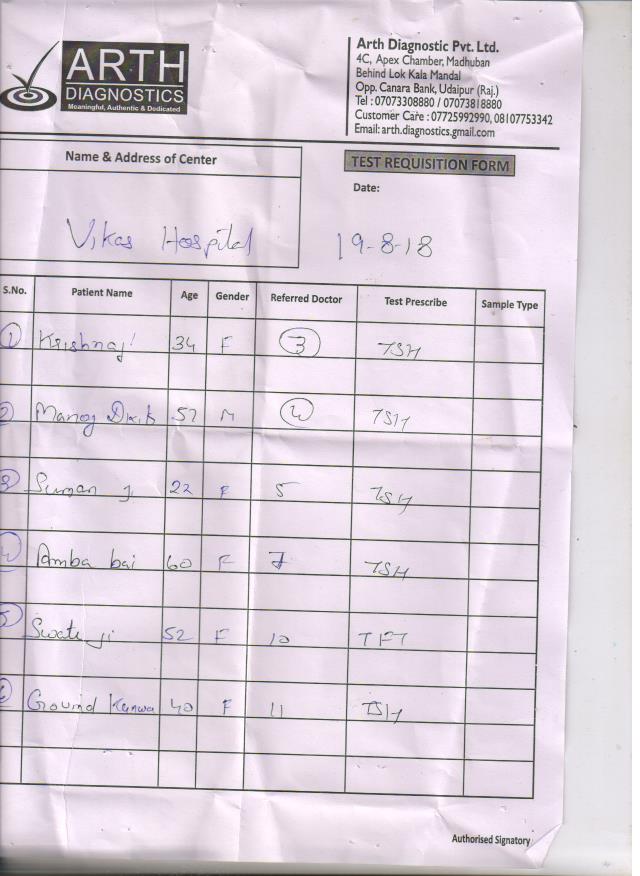 ARTH
DIAGNOSTICS
Meaningful, Authentic & Dedicated
Arth Diagnostic Pvt. Ltd.
4C, Apex Chamber, Madhuban
Behind Lok Kala Mandal
Opp. Canara Bank, Udaipur (Raj.)
Tel : 07073308880 / 07073818880
Customer Care : 07725992990, 08107753342
Email: arth.diagnostics.gmail.com
Name & Address of Center
TEST REQUISITION FORM
Date:
Vikas Hospital
19-8-18
S.No. Patient Name Age Gender Referred Doctor Test Prescribe Sample Type
1 Krishnaji 34 F 3 TSH
2 Manoj 57 M TSH
3 Suman ji 22 F 5 TSH
4 Amba bai 60 F 7 TSH
5 Swati ji 52 F 10 TFT
6 Ground Kanwa 40 F 11 TSH
Authorised Signatory